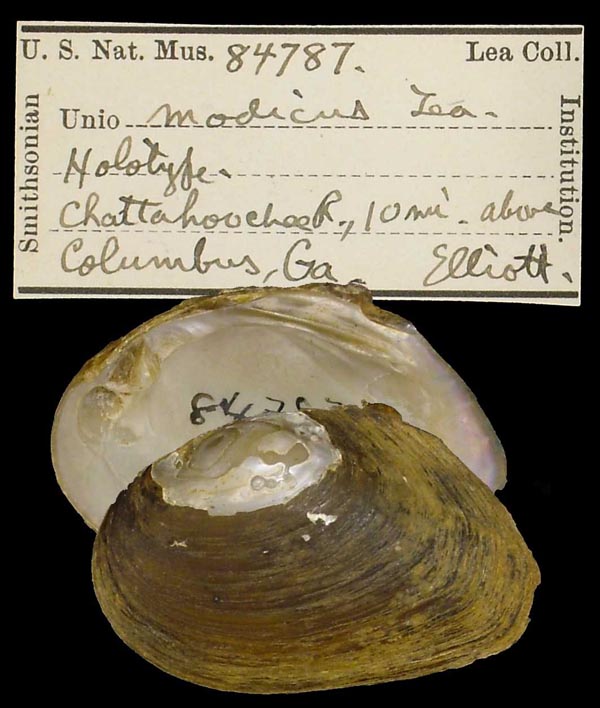 U. S. Nat. Mus. 84787. Lea Coll.
Smithsonian
Unio modicus Lea.
Holotype.
Chattahoochee R., 10 mi. above
Columbus, Ga. Elliott.
Institution.